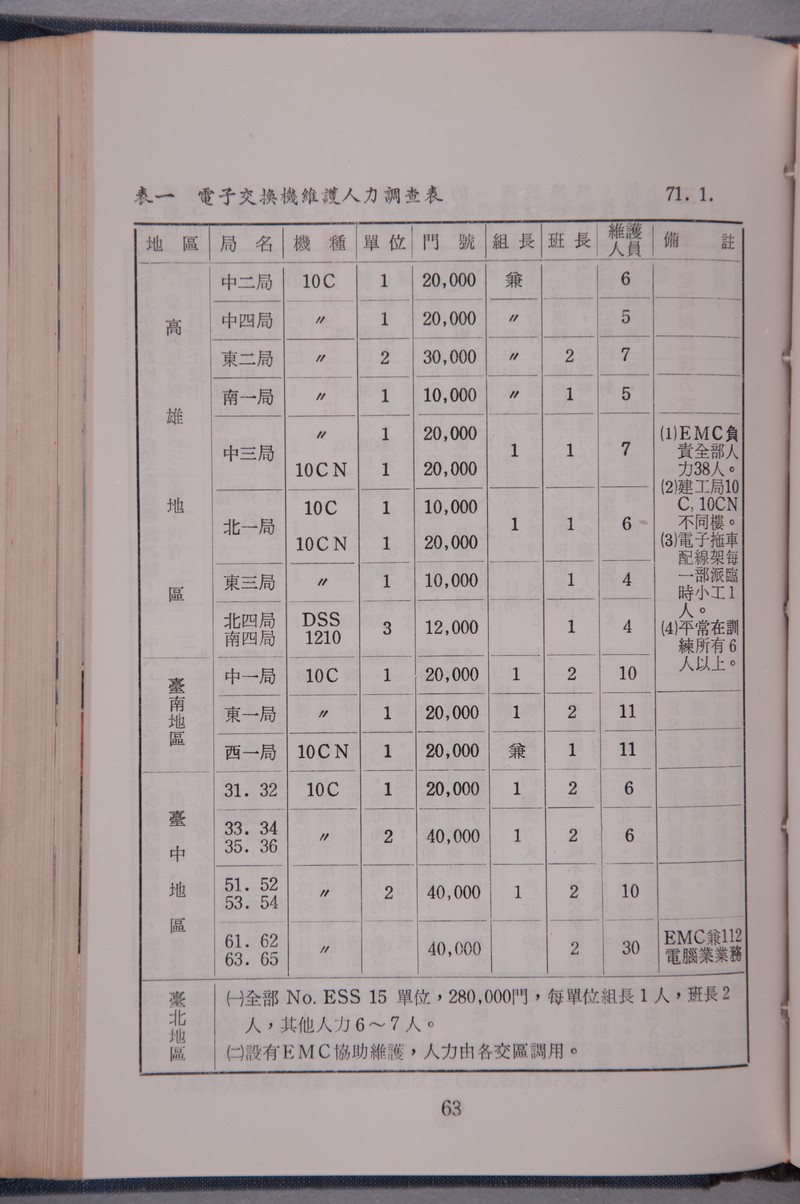 表一 電子交換機維護人力調查表 71. 1.
地區 局名 機種 單位 門號 組長 班長 維護人員 備註
高雄地區
中二局 10C 1 20,000 兼 6
中四局 〃 1 20,000 〃 5
東二局 〃 2 30,000 〃 2 7
南一局 〃 1 10,000 〃 1 5
中三局 〃 1 20,000 1 1 7
10CN 1 20,000
北一局 10C 1 10,000 1 1 6
10CN 1 20,000
東三局 〃 1 10,000 1 4
北四局 DSS 3 12,000 1 4
南四局 1210
(1)EMC負
責全部人
力38人。
(2)建工局10
C, 10CN
不同樓。
(3)電子拖車
配線架每
一部派臨
時小工1
人。
(4)平常在訓
練所有6
人以上。
臺南地區
中一局 10C 1 20,000 1 2 10
東一局 〃 1 20,000 1 2 11
西一局 10CN 1 20,000 兼 1 11
臺中地區
31. 32 10C 1 20,000 1 2 6
33. 34 〃 2 40,000 1 2 6
35. 36
51. 52 〃 2 40,000 1 2 10
53. 54
61. 62 〃 40,000 2 30 EMC兼112
63. 65 電腦業業務
臺北地區
㈠全部 No. ESS 15 單位，280,000門，每單位組長1人，班長2
人，其他人力6～7人。
㈡設有EMC協助維護，人力由各交區調用。
63